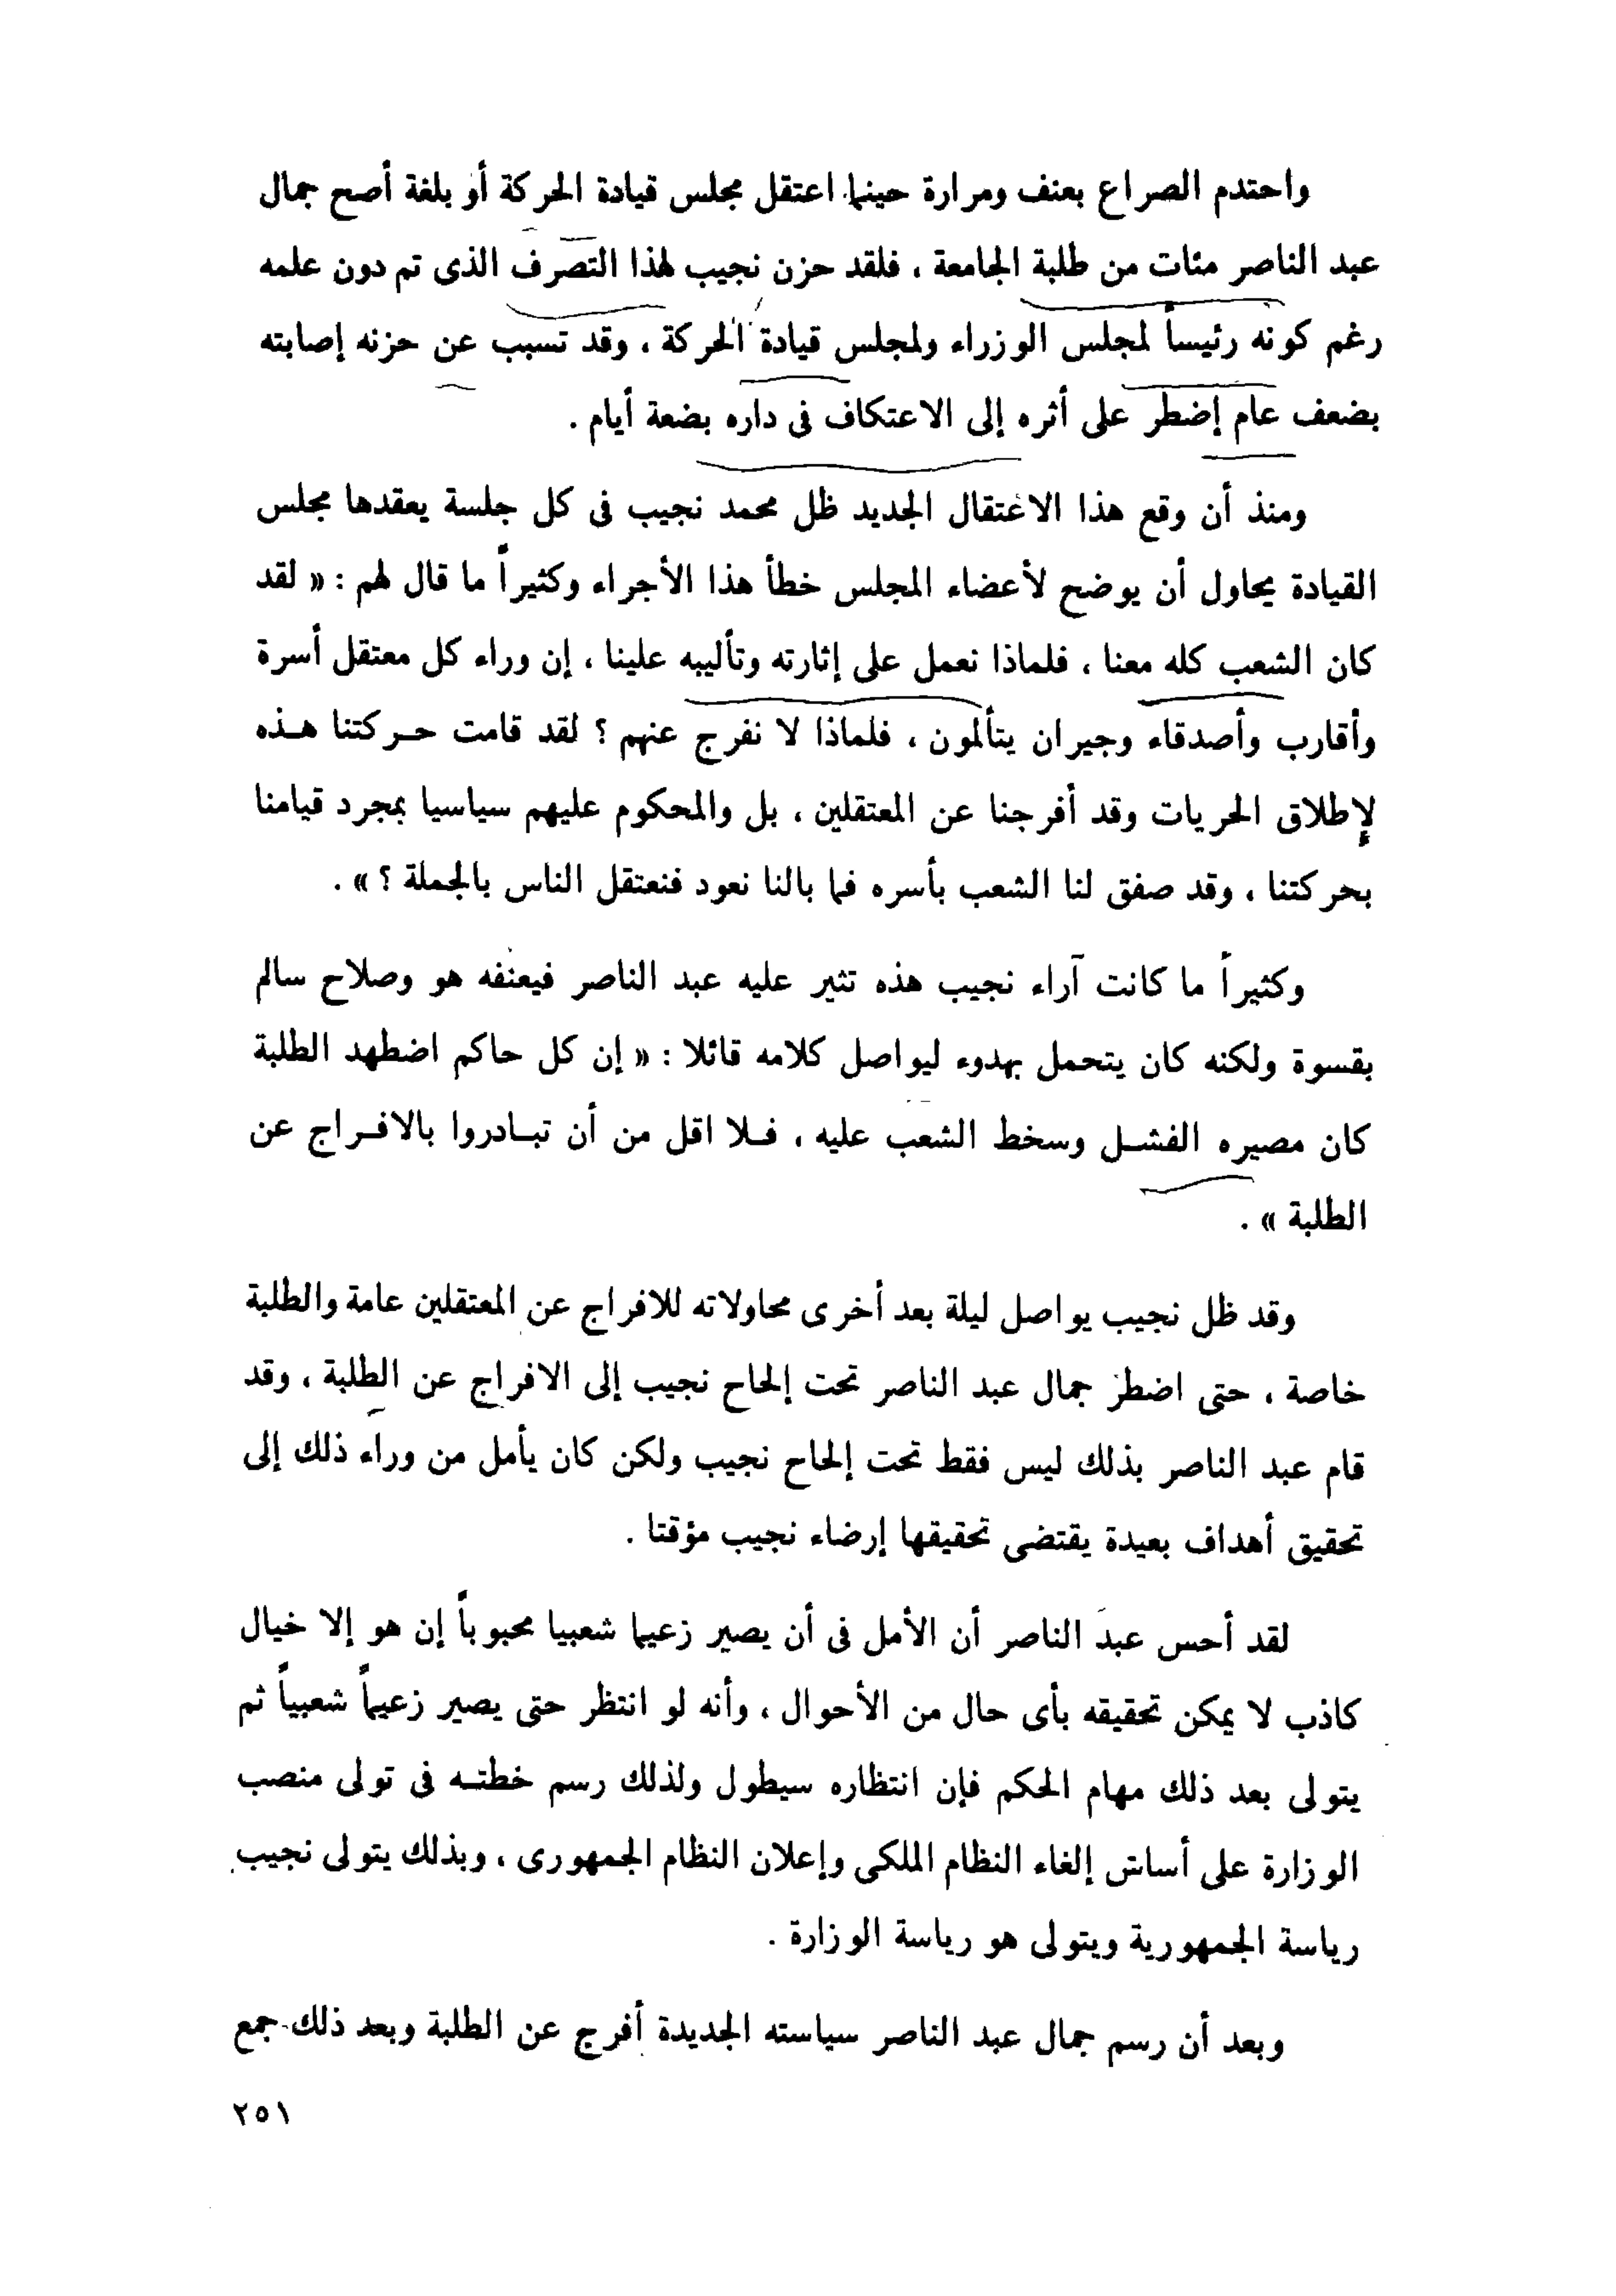 واحتدم الصراع بعنف ومرارة حينما اعتقل مجلس قيادة الحركة أو بلغة أصح جمال
عبد الناصر مئات من طلبة الجامعة ، فلقد حزن نجيب لهذا التصرف الذى تم دون علمه
رغم كونه رئيساً لمجلس الوزراء ولمجلس قيادة الحركة ، وقد تسبب عن حزنه إصابته
بضعف عام إضطر على أثره إلى الاعتكاف فى داره بضعة أيام .
ومنذ أن وقع هذا الاعتقال الجديد ظل محمد نجيب فى كل جلسة يعقدها مجلس
القيادة يحاول أن يوضح لأعضاء المجلس خطأ هذا الأجراء وكثيراً ما قال لهم : « لقد
كان الشعب كله معنا ، فلماذا نعمل على إثارته وتأليبه علينا ، إن وراء كل معتقل أسرة
وأقارب وأصدقاء وجيران يتألمون ، فلماذا لا نفرج عنهم ؟ لقد قامت حركتنا هذه
لإطلاق الحريات وقد أفرجنا عن المعتقلين ، بل والمحكوم عليهم سياسيا بمجرد قيامنا
بحركتنا ، وقد صفق لنا الشعب بأسره فما بالنا نعود فنعتقل الناس بالجملة ؟ » .
وكثيراً ما كانت آراء نجيب هذه تثير عليه عبد الناصر فيعنفه هو وصلاح سالم
بقسوة ولكنه كان يتحمل بهدوء ليواصل كلامه قائلا : « إن كل حاكم اضطهد الطلبة
كان مصيره الفشل وسخط الشعب عليه ، فلا اقل من أن تبادروا بالافراج عن
الطلبة » .
وقد ظل نجيب يواصل ليلة بعد أخرى محاولاته للافراج عن المعتقلين عامة والطلبة
خاصة ، حتى اضطر جمال عبد الناصر تحت إلحاح نجيب إلى الافراج عن الطلبة ، وقد
قام عبد الناصر بذلك ليس فقط تحت إلحاح نجيب ولكن كان يأمل من وراء ذلك إلى
تحقيق أهداف بعيدة يقتضى تحقيقها إرضاء نجيب مؤقتا .
لقد أحس عبد الناصر أن الأمل فى أن يصير زعيما شعبيا محبوباً إن هو إلا خيال
كاذب لا يمكن تحقيقه بأى حال من الأحوال ، وأنه لو انتظر حتى يصير زعيماً شعبياً ثم
يتولى بعد ذلك مهام الحكم فإن انتظاره سيطول ولذلك رسم خطته فى تولى منصب
الوزارة على أساس إلغاء النظام الملكى وإعلان النظام الجمهورى ، وبذلك يتولى نجيب
رياسة الجمهورية ويتولى هو رياسة الوزارة .
وبعد أن رسم جمال عبد الناصر سياسته الجديدة أفرج عن الطلبة وبعد ذلك جمع
٢٥١